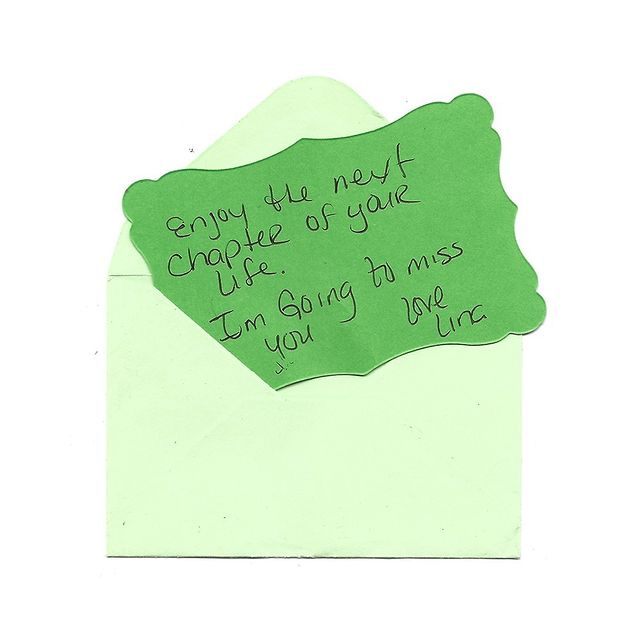 Enjoy the next
Chapter of your
Life.
Im Going to miss
you
love
Lina